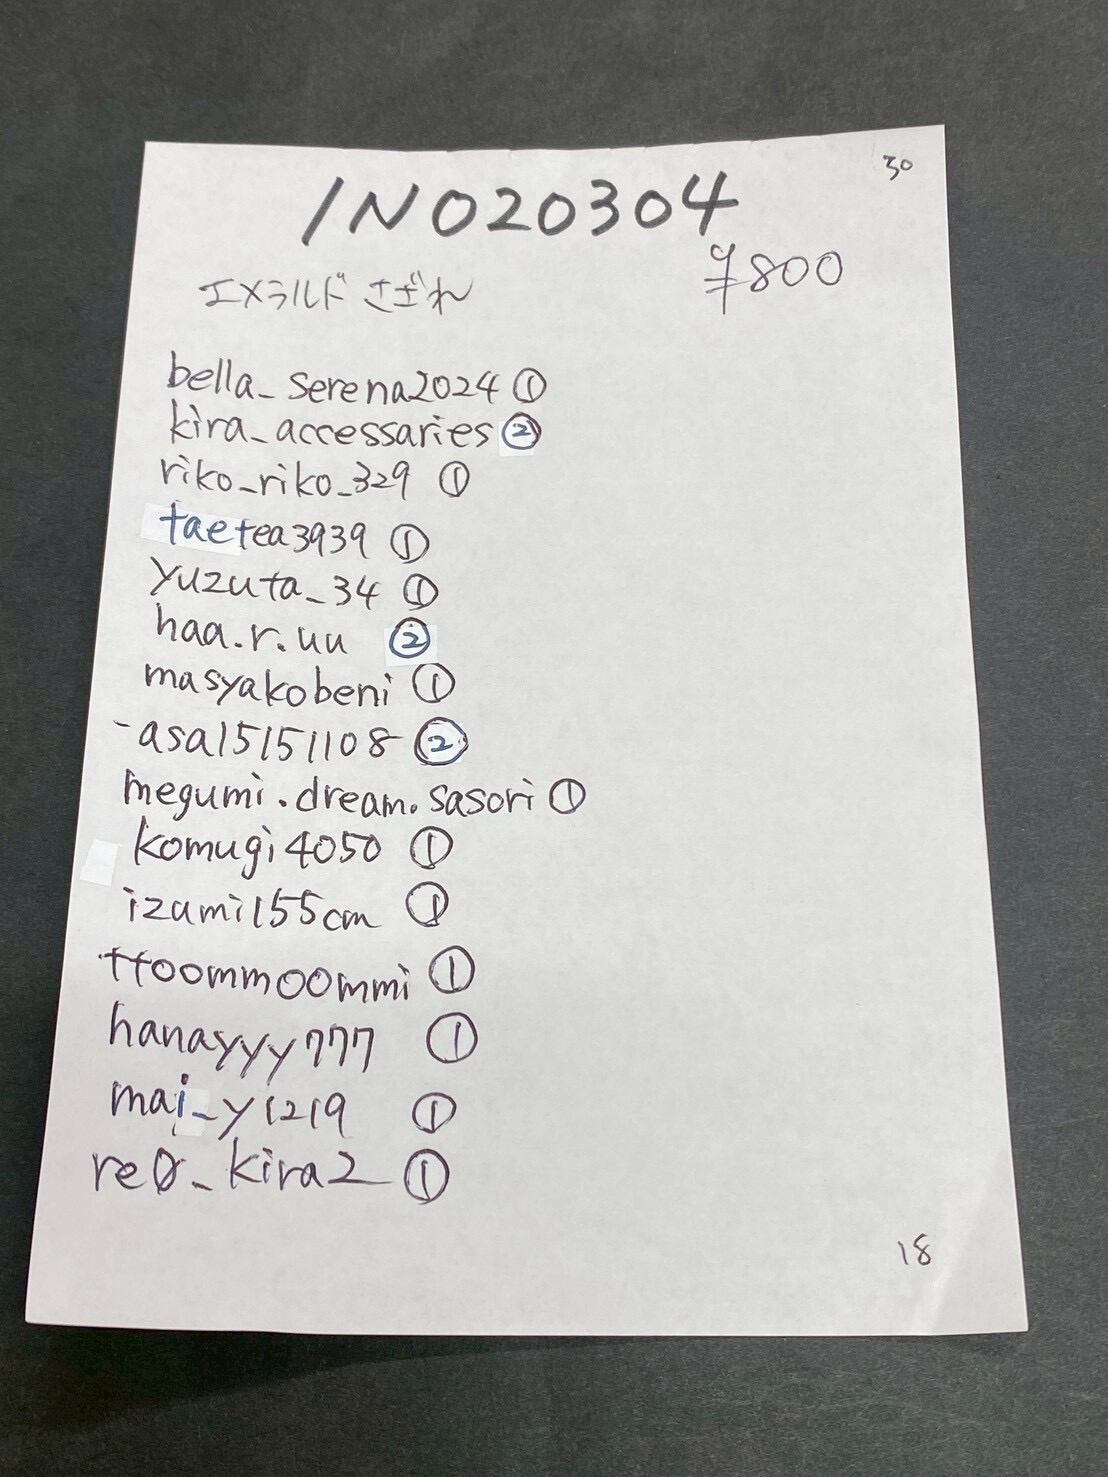 30
INO20304
¥800
エメラルドさざれ
bella_serena2024 ①
kira_accessaries ②
riko_riko_329 ①
taetea3939 ①
yuzuta_34 ①
haa.r.uu ②
masyakobeni ①
-asa15151108 ②
megumi.dream.sasori ①
komugi4050 ①
izumi155cm ①
ttoommoommi ①
hanayyy777 ①
mai_y1219 ①
re0_kira2 ①
18